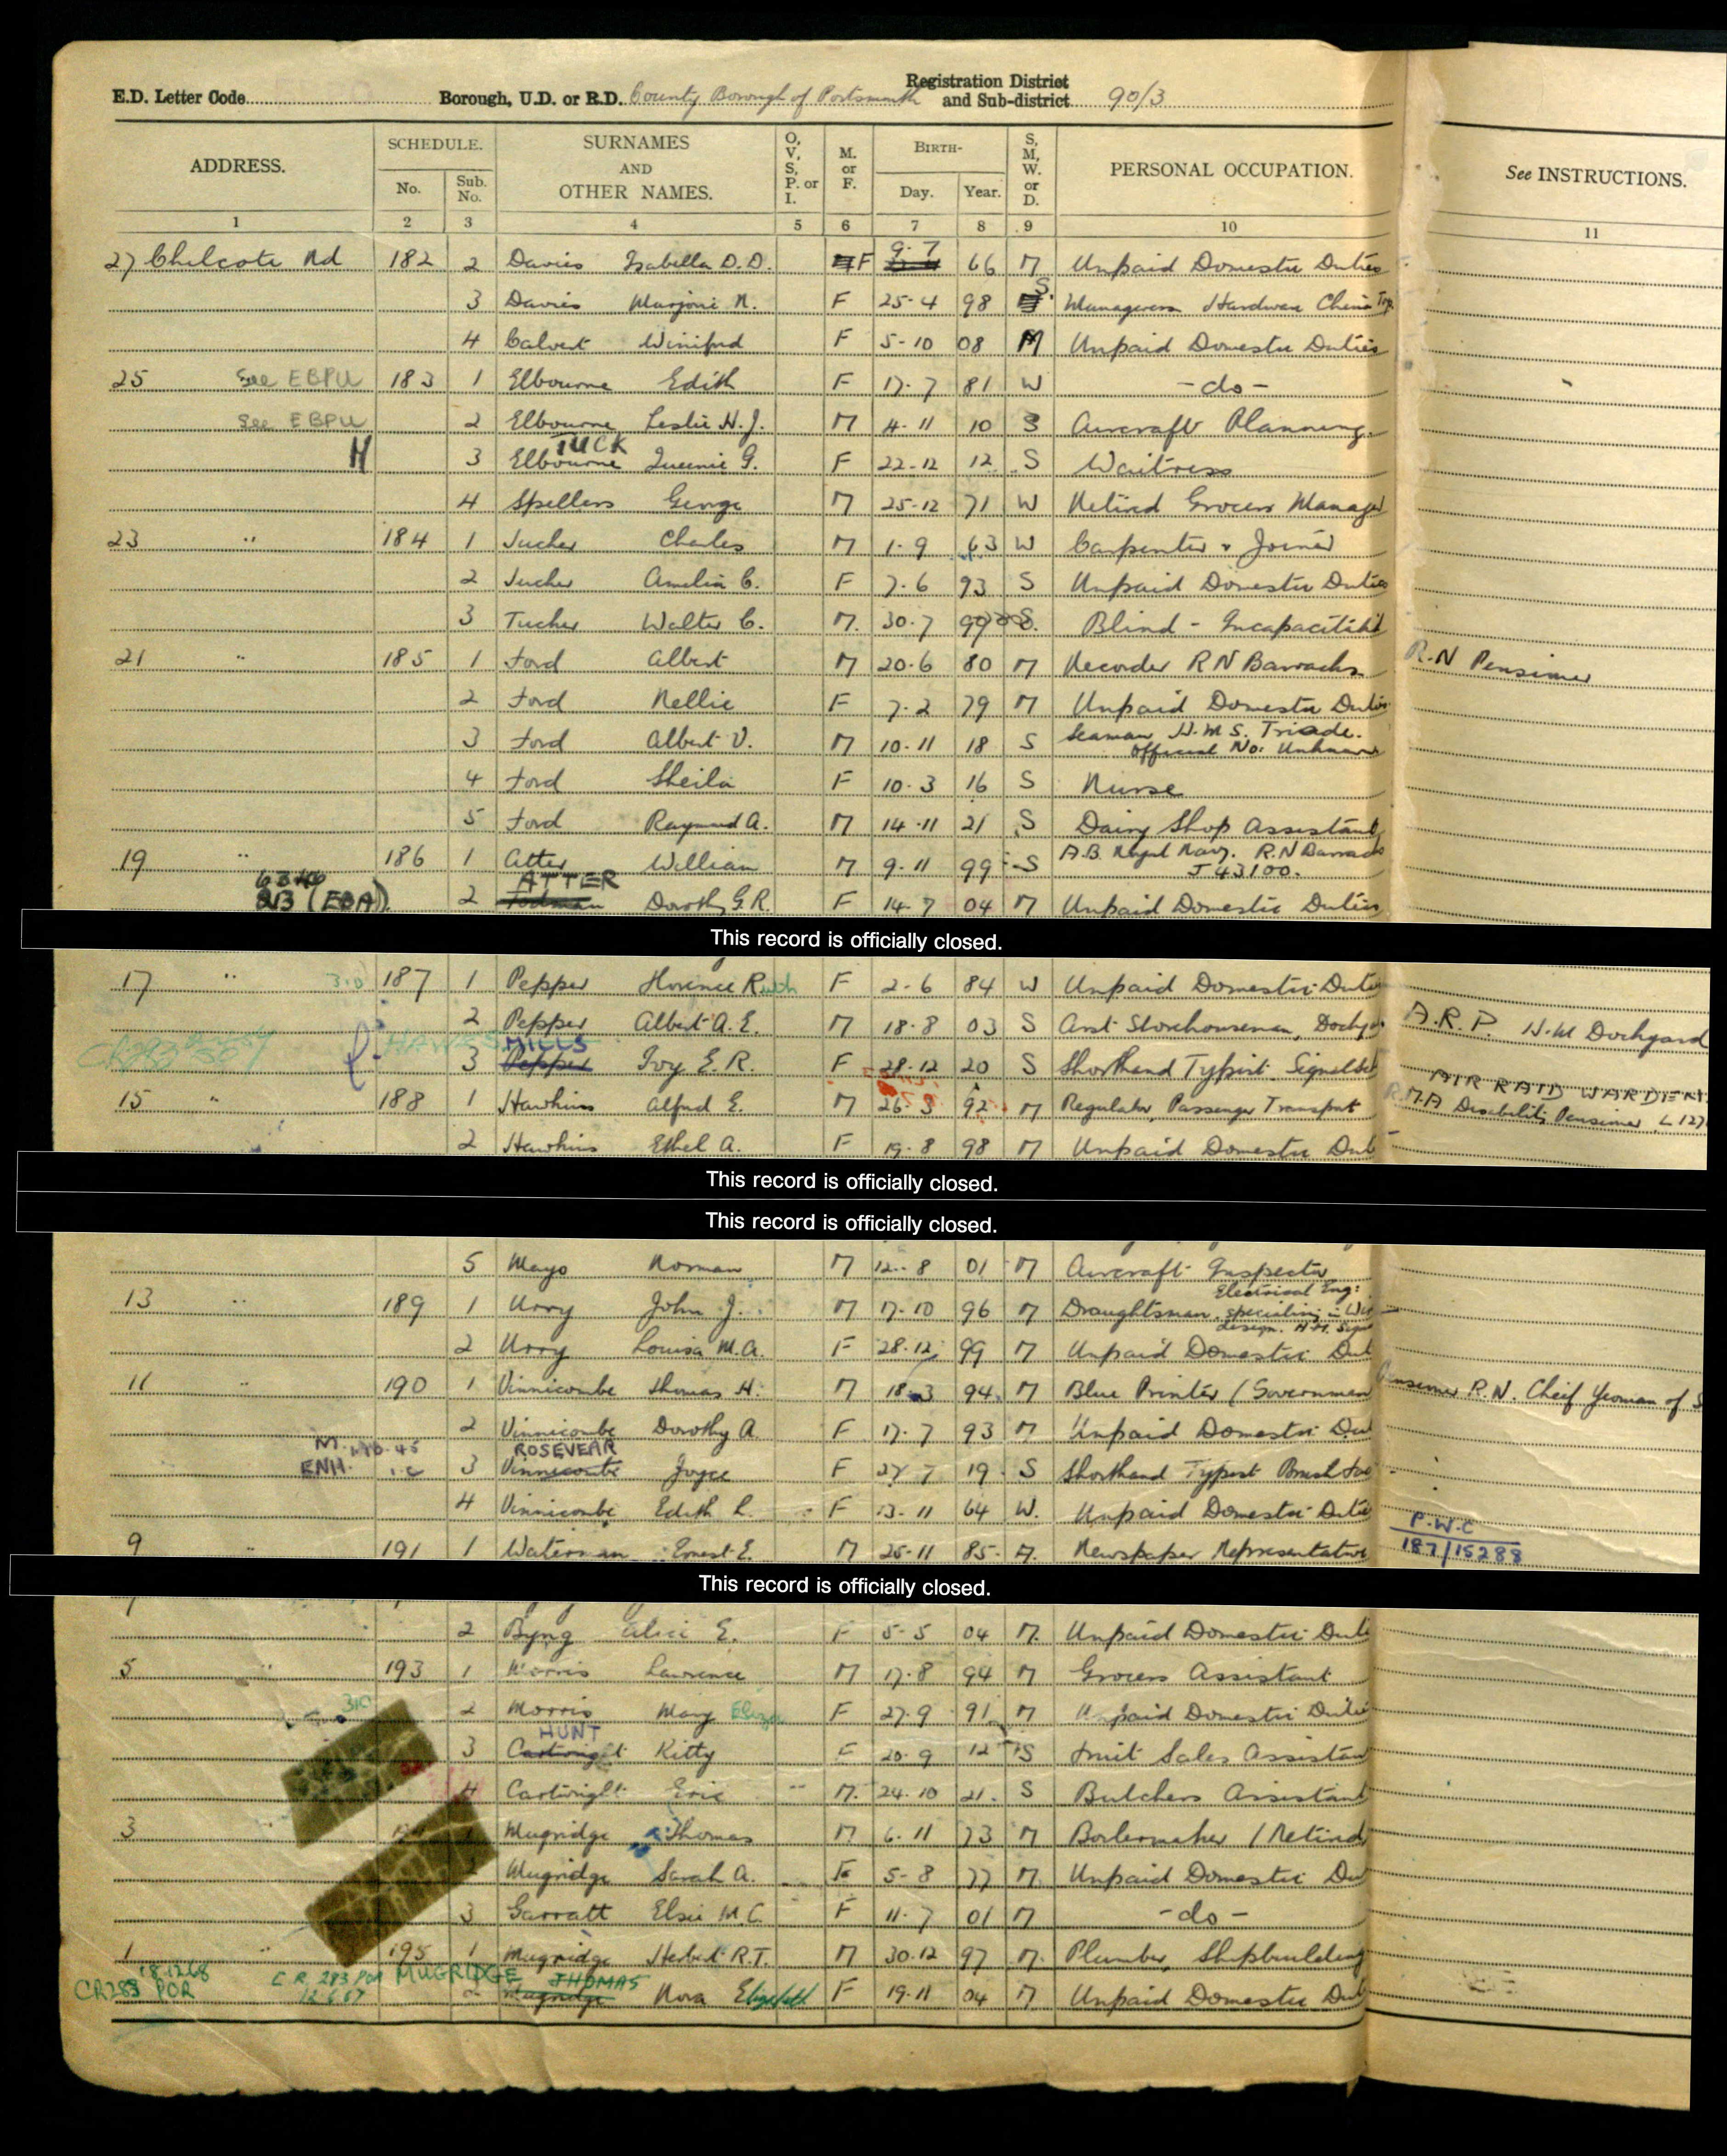 Registration District
E.D. Letter Code Borough, U.D. or R.D. County Borough of Portsmouth and Sub-district 90/3
ADDRESS. SCHEDULE. No. Sub. No. SURNAMES AND OTHER NAMES. O, V, S, P. or I. M. or F. BIRTH- Day. Year. S, M, W. or D. PERSONAL OCCUPATION. See INSTRUCTIONS.
1 2 3 4 5 6 7 8 9 10 11
27 Chelcote Rd 182 2 Davies Isabella D.D. F 9.7 66 M Unpaid Domestic Duties
3 Davies Marjorie N. F 25-4 98 S Manageress Hardware China
4 Calvert Winifred F 5-10 08 M Unpaid Domestic Duties
25 See EBPU 183 1 Elbourne Edith F 17.7 81 W -do-
See EBPU 2 Elbourne Leslie H.J. M 4-11 10 S Aircraft Planning.
TUCK
H 3 Elbourne Queenie G. F 22-12 12 S Waitress
4 Spellers George M 25-12 71 W Retired Grocers Manager
23 " 184 1 Tucker Charles M 1.9 63 W Carpenter & Joiner
2 Tucker Amelia C. F 7.6 93 S Unpaid Domestic Duties
3 Tucker Walter C. M. 30.7 99 S. Blind - Incapacitated
21 " 185 1 Ford Albert M 20.6 80 M Recorder RN Barracks R.N Pensioner
2 Ford Nellie F 7.2 79 M Unpaid Domestic Duties
3 Ford Albert V. M 10-11 18 S Seaman H.M.S. Triade.
Official No: Unknown
4 Ford Sheila F 10.3 16 S Nurse
5 Ford Raymond A. M 14-11 21 S Dairy Shop Assistant
19 " 186 1 Atter William M 9.11 99 S A.B. Royal Navy. R.N Barracks
J 43100.
ATTER
(EBA) 2 Dorothy G.R. F 14-7 04 M Unpaid Domestic Duties
This record is officially closed.
17 " 310 187 1 Pepper Florence Ruth F 2-6 84 W Unpaid Domestic Duties
2 Pepper Albert A.E. M 18.8 03 S Asst Storehouseman, Dockyd A.R.P. H.M Dockyard
MILLS
3 Pepper Ivy E.R. F 28.12 20 S Shorthand Typist AIR RAID WARDEN
15 " 188 1 Hawkins Alfred E. M 26.3 92 M Regulator, Passenger Transport R.M.A Disability Pensioner
2 Hawkins Ethel A. F 19.8 98 M Unpaid Domestic Dut
This record is officially closed.
This record is officially closed.
5 Mayo Norman M 12-8 01 M Aircraft Inspector
Electrical Eng:
13 " 189 1 Urry John J. M 17-10 96 M Draughtsman, specialising in
design.
2 Urry Louisa M.A. F 28.12 99 M Unpaid Domestic Dut
11 " 190 1 Vinnicombe Thomas H. M 18.3 94 M Blue Printer (Governmen Pensioner R.N. Cheif Yeoman of S
2 Vinnicombe Dorothy A. F 17.7 93 M Unpaid Domestic Dut
M.
ROSEVEAR
ENH. 3 Vinnicombe Joyce F 27 7 19 S Shorthand Typist
4 Vinnicombe Edith L. F 13-11 64 W. Unpaid Domestic Dutie
P.W.C
9 " 191 1 Waterman Ernest E. M 25-11 85 M. Newspaper Representative 187/15288
This record is officially closed.
2 Byng Alice E. F 5-5 04 M. Unpaid Domestic Duti
5 " 193 1 Morris Lawrence M 17.8 94 M Grocers Assistant
310 2 Morris Mary Eliza F 27.9 91 M Unpaid Domestic Dutie
HUNT
3 Cartwright Kitty F 20.9 12 S Fruit Sales Assistan
4 Cartwright Eric M. 24.10 21. S Butchers Assistant
3 Mugridge Thomas M 6.11 73 M Boilermaker (Retired
Mugridge Sarah A. F 5-8 77 M Unpaid Domestic Du
3 Garratt Elsie M.C. F 11.7 01 M -do-
1 " 195 1 Mugridge Herbert R.T. M 30.12 97 M. Plumber, Shipbuilding
18.12.68 C.R. 283 POR MUGRIDGE THOMAS
CR283 POR 12.6.67 2 Mugridge Nora Elizabeth F 19.11 04 M Unpaid Domestic Dut